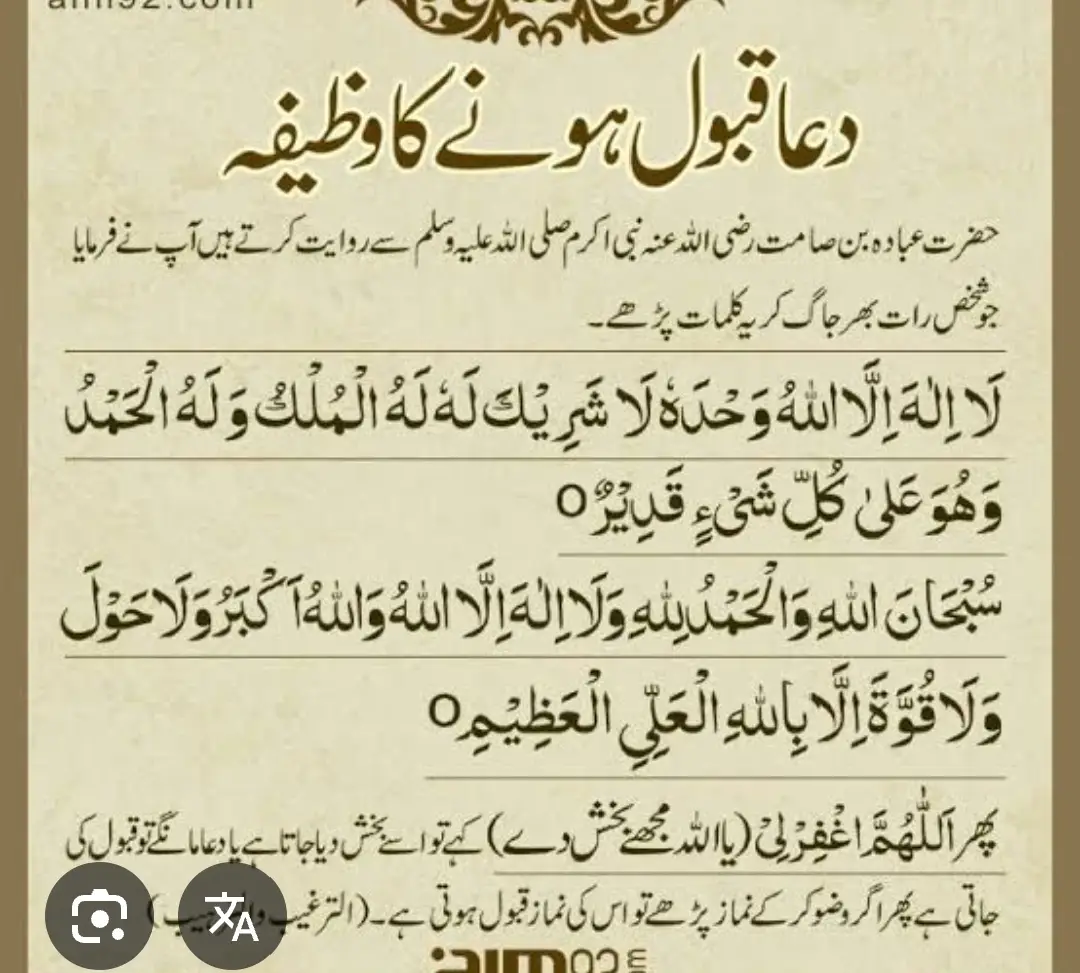 دعا قبول ہونے کا وظیفہ
حضرت عبادہ بن صامت رضی اللہ عنہ نبی اکرم صلی اللہ علیہ وسلم سے روایت کرتے ہیں آپ نے فرمایا
جو شخص رات بھر جاگ کر یہ کلمات پڑھے۔
لَا اِلٰهَ اِلَّا اللهُ وَحْدَهٗ لَا شَرِيْكَ لَهٗ لَهُ الْمُلْكُ وَلَهُ الْحَمْدُ
وَهُوَ عَلىٰ كُلِّ شَىْءٍ قَدِيْرٌ O
سُبْحَانَ اللهِ وَالْحَمْدُ لِلهِ وَلَا اِلٰهَ اِلَّا اللهُ وَاللهُ اَكْبَرُ وَلَا حَوْلَ
وَلَا قُوَّةَ اِلَّا بِاللهِ الْعَلِّيِ الْعَظِيْمِ O
پھر اَللّٰهُمَّ اغْفِرْلِىْ (یا اللہ مجھے بخش دے) کہے تو اسے بخش دیا جاتا ہے یا دعا مانگے تو قبول کی
جاتی ہے پھر اگر وضو کر کے نماز پڑھے تو اس کی نماز قبول ہوتی ہے۔ (الترغیب